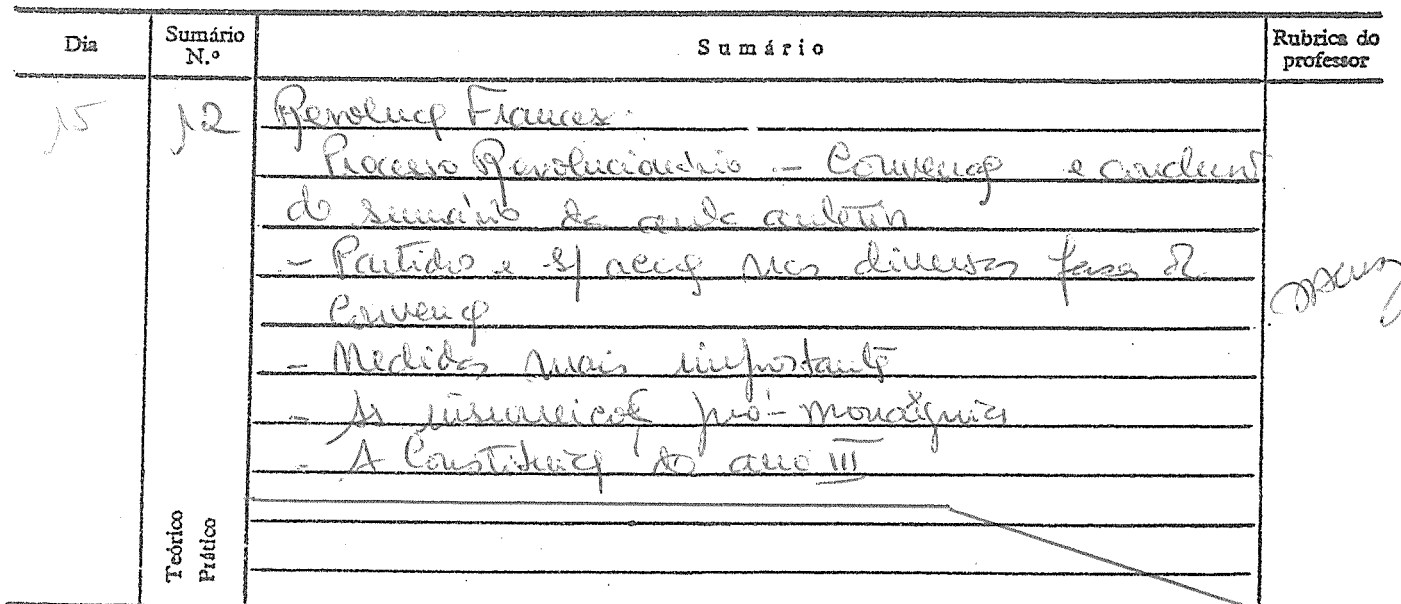 Dia
Sumário N.º
Sumário
Rubrica do professor
15
12
Revoluçã Frances.
- Processo Revolucionário - Convençã e conclusã
do sumário da aula anterior
- Partidos e s/ acçã nas diversas fases da
Convençã
- Medidas mais importantes
- As insurreições pró-monárquicas
- A Constituiçã do ano III
Teórico
Prático